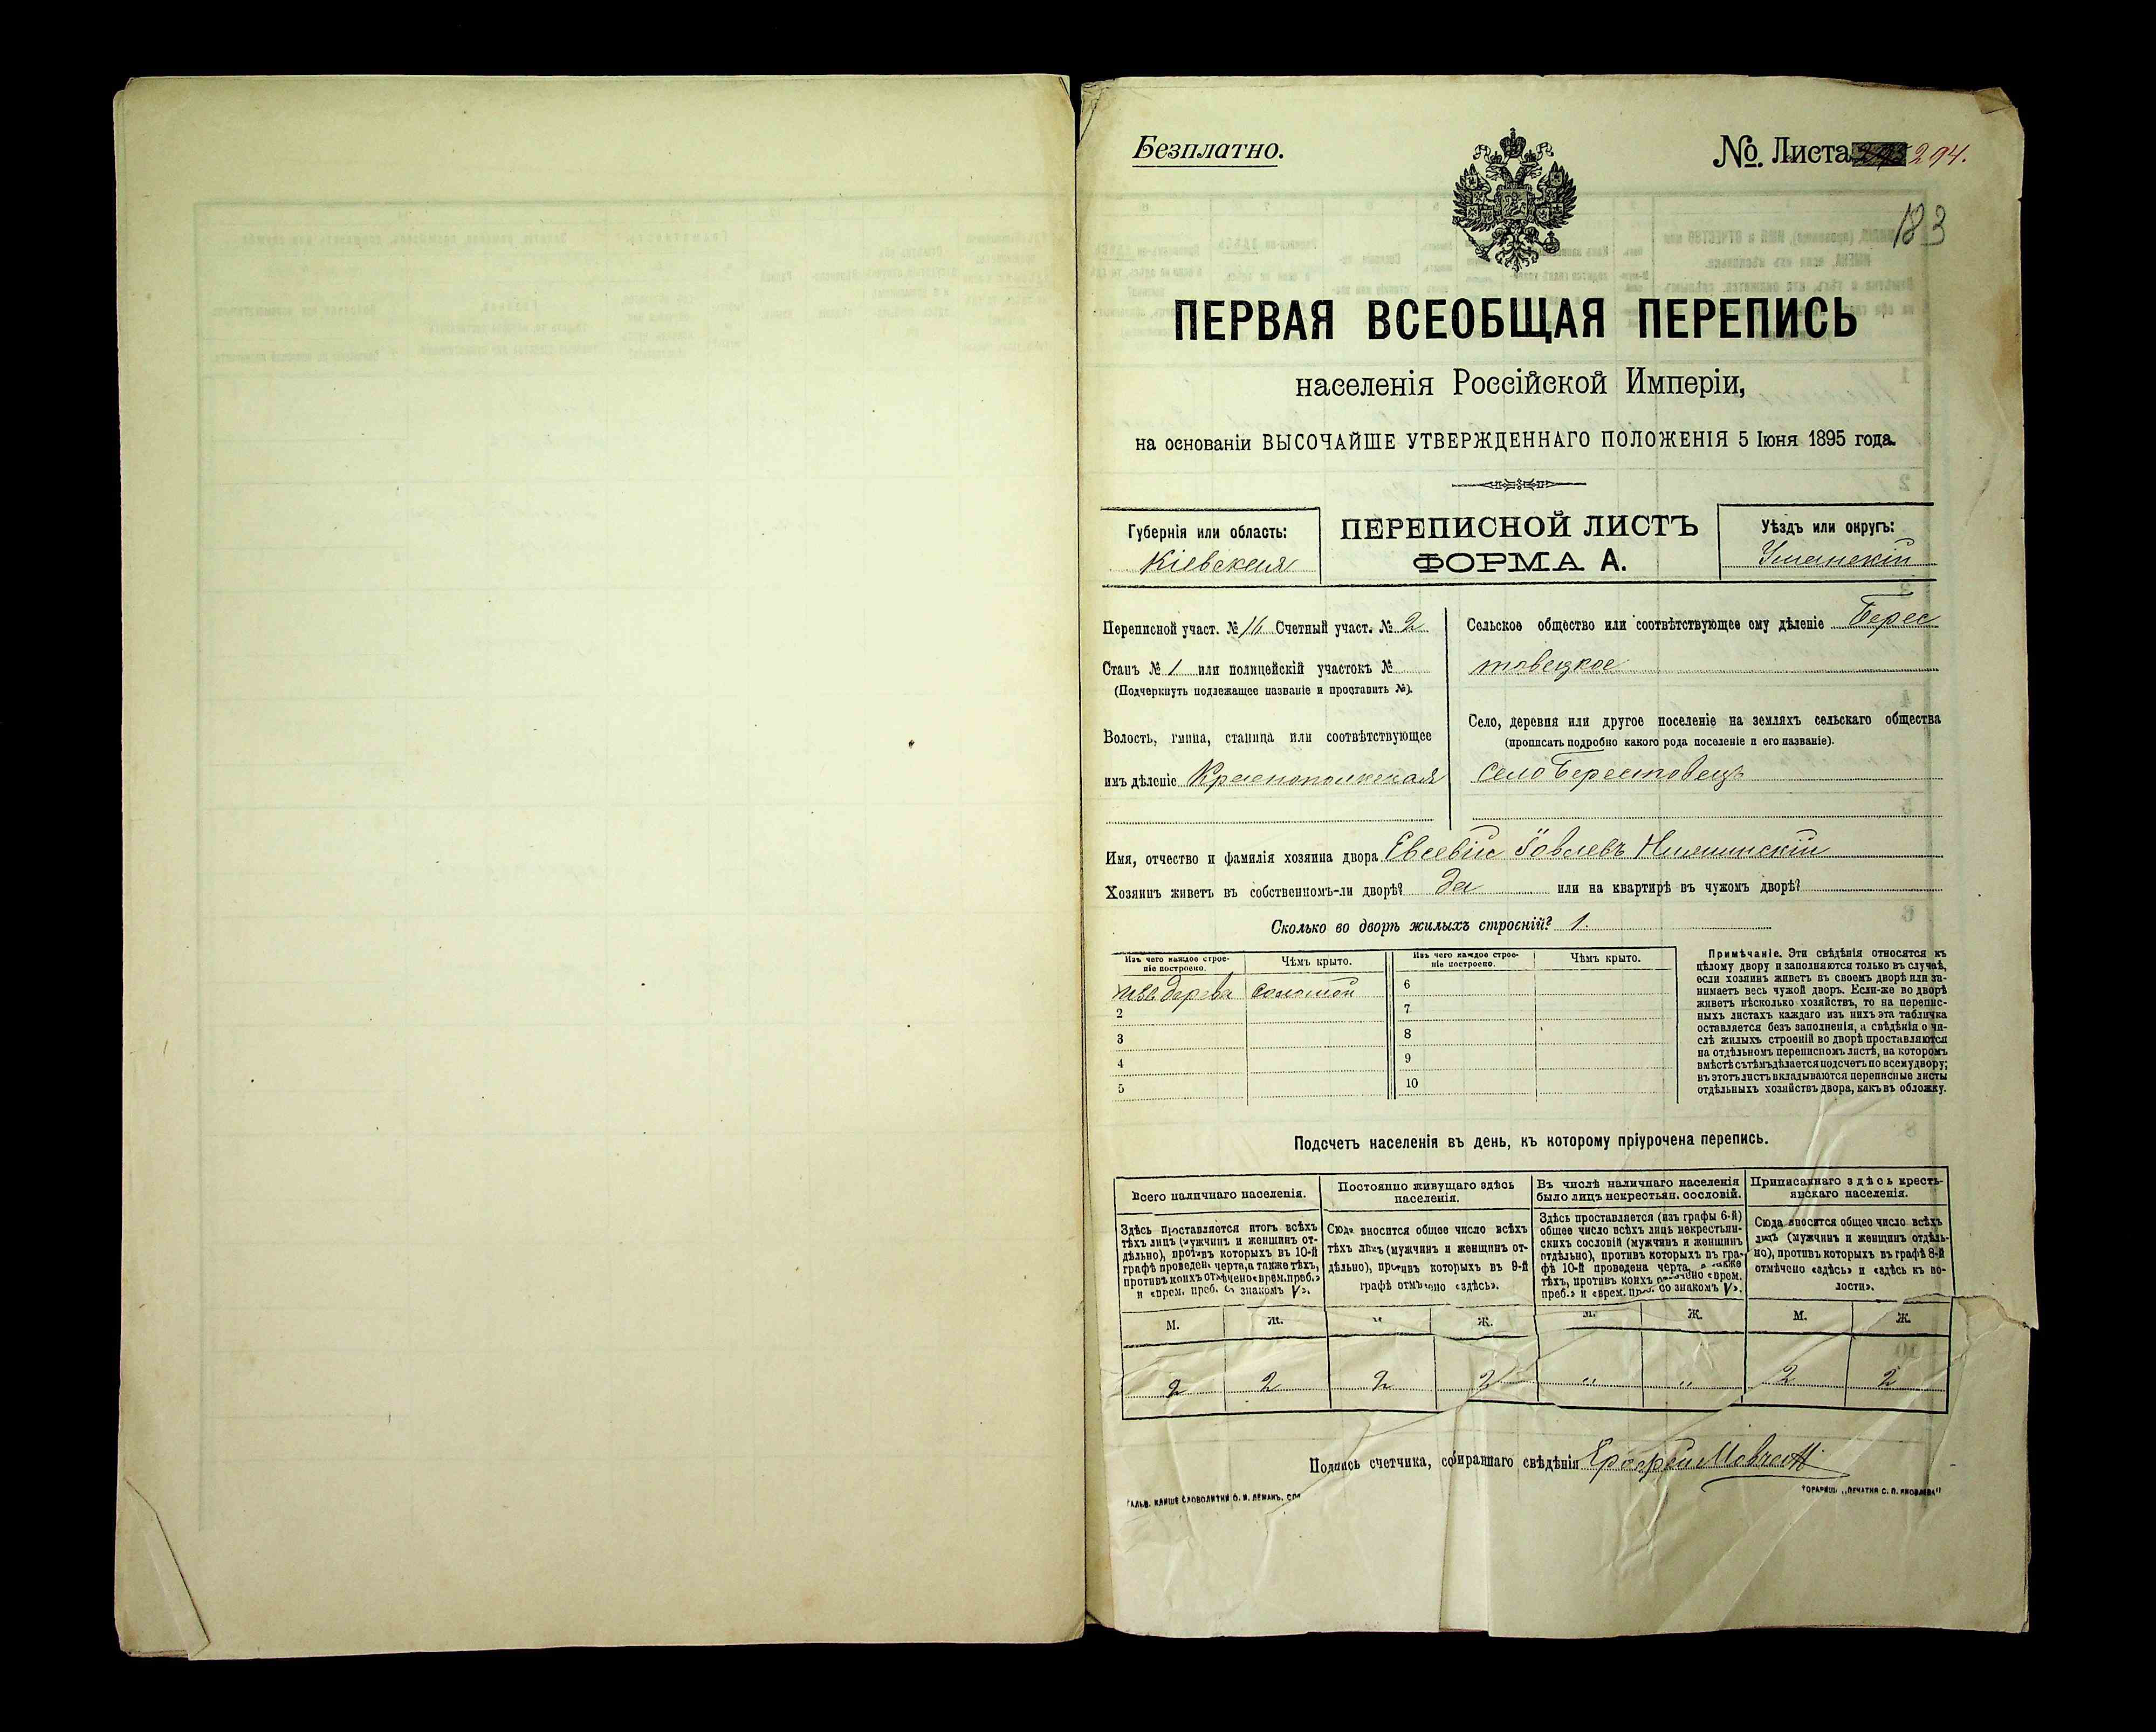 Безплатно.
№ Листа 294.
183
ПЕРВАЯ ВСЕОБЩАЯ ПЕРЕПИСЬ
населенія Россійской Имперіи,
на основаніи ВЫСОЧАЙШЕ УТВЕРЖДЕННАГО ПОЛОЖЕНІЯ 5 Іюня 1895 года.
Губернія или область:
Кіевская
ПЕРЕПИСНОЙ ЛИСТЪ
ФОРМА А.
Уѣздъ или округъ:
Уманскій
Переписной участ. № 16 Счетный участ. № 2
Станъ № 1 или полицейскій участокъ №
(Подчеркнуть подлежащее названіе и проставить №).
Волость, гмина, станица или соотвѣтствующее
имъ дѣленіе Краснопольская
Сельское общество или соотвѣтствующее ему дѣленіе Берес
товецкое
Село, деревня или другое поселеніе на земляхъ сельскаго общества
(прописать подробно какого рода поселеніе и его названіе).
село Берестовецъ
Имя, отчество и фамилія хозяина двора Евсевій Іовлевъ
Хозяинъ живетъ въ собственномъ-ли дворѣ? да или на квартирѣ въ чужомъ дворѣ?
Сколько во дворѣ жилыхъ строеній? 1.
Изъ чего каждое строе-
ніе построено.
Чѣмъ крыто.
Изъ чего каждое строе-
ніе построено.
Чѣмъ крыто.
изъ дерева соломой
2
3
4
5
6
7
8
9
10
Примѣчаніе. Эти свѣдѣнія относятся къ
цѣлому двору и заполняются только въ случаѣ,
если хозяинъ живетъ въ своемъ дворѣ или за-
нимаетъ весь чужой дворъ. Если-же во дворѣ
живетъ нѣсколько хозяйствъ, то на перепис-
ныхъ листахъ каждаго изъ нихъ эта табличка
оставляется безъ заполненія, а свѣдѣнія о чи-
слѣ жилыхъ строеній во дворѣ проставляются
на отдѣльномъ переписномъ листѣ, на которомъ
вмѣстѣ съ тѣмъ дѣлается подсчетъ по всему двору;
въ этотъ листъ вкладываются переписные листы
отдѣльныхъ хозяйствъ двора, какъ въ обложку.
Подсчетъ населенія въ день, къ которому пріурочена перепись.
Всего наличнаго населенія.
Здѣсь проставляется итогъ всѣхъ
тѣхъ лицъ (мужчинъ и женщинъ от-
дѣльно), противъ которыхъ въ 10-й
графѣ проведена черта, а также тѣхъ,
противъ коихъ отмѣчено «врем. преб.»
и «врем. преб. со знакомъ V».
Постоянно живущаго здѣсь
населенія.
Сюда вносится общее число всѣхъ
тѣхъ лицъ (мужчинъ и женщинъ от-
дѣльно), противъ которыхъ въ 9-й
графѣ отмѣчено «здѣсь».
Въ числѣ наличнаго населенія
было лицъ некрестьян. сословій.
Здѣсь проставляется (изъ графы 6-й)
общее число всѣхъ лицъ некрестьян-
скихъ сословій (мужчинъ и женщинъ
отдѣльно), противъ которыхъ въ гра-
фѣ 10-й проведена черта, а также
тѣхъ, противъ коихъ отмѣчено «врем.
преб.» и «врем. преб. со знакомъ V».
Приписаннаго здѣсь кресть-
янскаго населенія.
Сюда вносится общее число всѣхъ
лицъ (мужчинъ и женщинъ отдѣль-
но), противъ которыхъ въ графѣ 8-й
отмѣчено «здѣсь» и «здѣсь къ во-
лости».
М. Ж. М. Ж. М. Ж. М. Ж.
2 2 2 2 " " 2 2
Подпись счетчика, собиравшаго свѣдѣнія
ГАЛЬВ. КЛИШЕ СЛОВОЛИТНИ О. И. ЛЕМАНЪ, СПБ
ТОВАРИЩ. „ПЕЧАТНЯ С. П. ЯКОВЛЕВА"